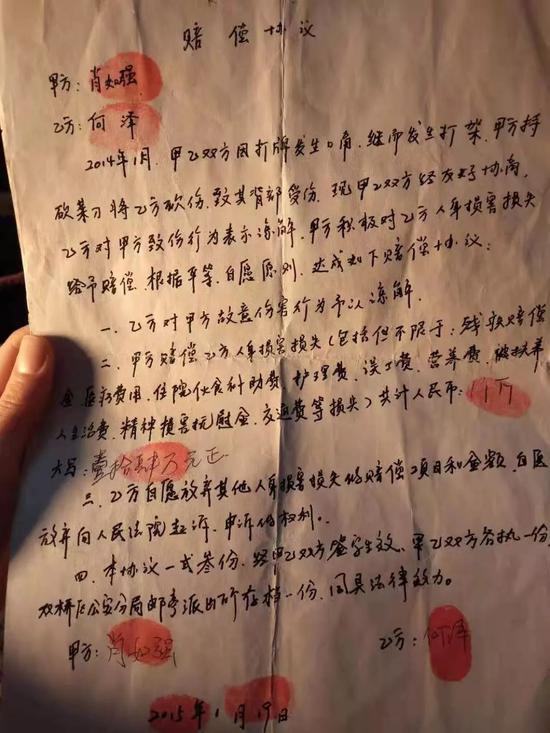 赔偿协议
甲方：肖如强
乙方：何泽
2014年1月，甲乙双方因打牌发生口角，继而发生打架，甲方持
砍菜刀将乙方砍伤，致其背部受伤，现甲乙双方经友好协商，
乙方对甲方致伤行为表示谅解，甲方积极对乙方人身损害损失
给予赔偿，根据平等、自愿原则，达成如下赔偿协议：
一、乙方对甲方故意伤害行为予以谅解。
二、甲方赔偿乙方人身损害损失（包括但不限于：残疾赔偿
金、医疗费用、住院伙食补助费、护理费、误工费、营养费、被扶养
人生活费、精神损害抚慰金、交通费等损失）共计人民币：
大写：壹拾肆万元正
三、乙方自愿放弃其他人身损害损失的赔偿项目和金额，自愿
放弃向人民法院起诉、申诉的权利。
四、本协议一式叁份，经甲乙双方签字生效，甲乙双方各执一份，
双桥区公安分局邮亭派出所存档一份，同具法律效力。
甲方：肖如强 乙方：何泽
2015年1月19日